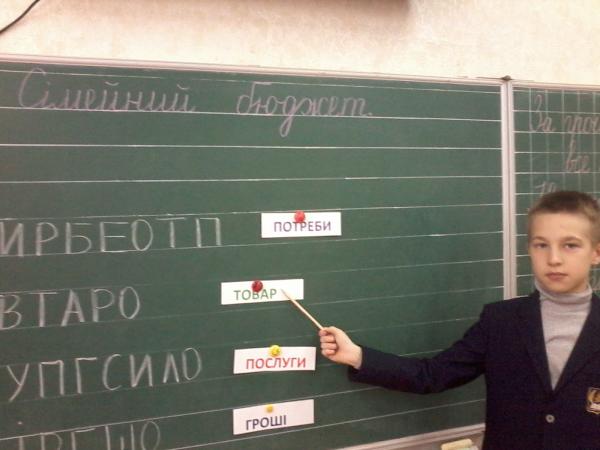 Сімейний бюджет.
ИРБЕОТП ПОТРЕБИ
ВТАРО ТОВАР
УПГСИЛО ПОСЛУГИ
ГРОШІ
За
все